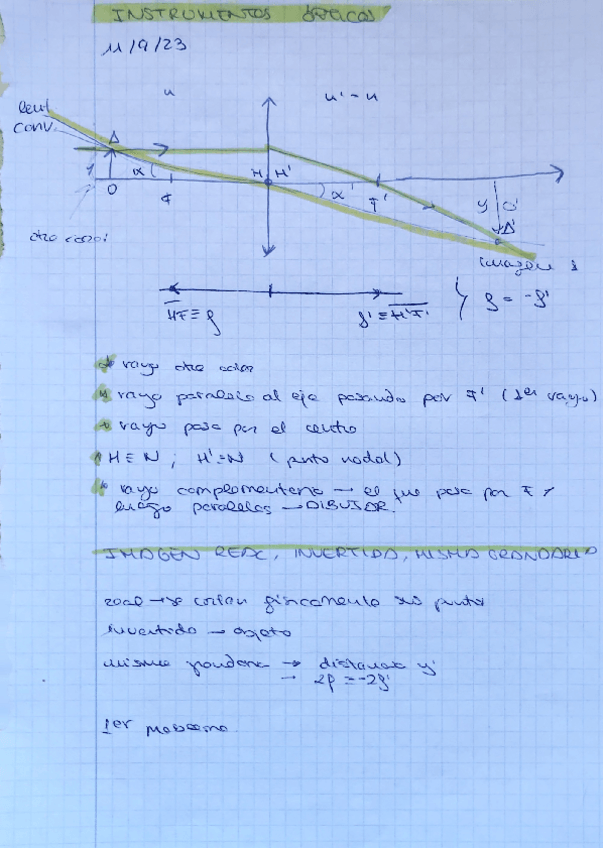 INSTRUMENTOS ÓPTICOS
11/9/23
n
n' = n
lent
conv.
A
α
O
F
H H'
α'
F'
y'
O'
A'
otro color
imagen
HF ≡ f
f' ≡ H'F'
f = -f'
rayo otro color
rayo paralelo al eje pasando por F' (1er rayo)
rayo pasa por el centro
H ≡ N ; H' ≡ N (punto nodal)
rayo complementario → el que pasa por F y
luego paralelas → DIBUJAR.
IMAGEN REAL, INVERTIDA, MISMA GRANDARIA
real → se cortan físicamente sus puntos
invertido → objeto
misma grandaria → distancia y'
→ 2f = -2f'
1er